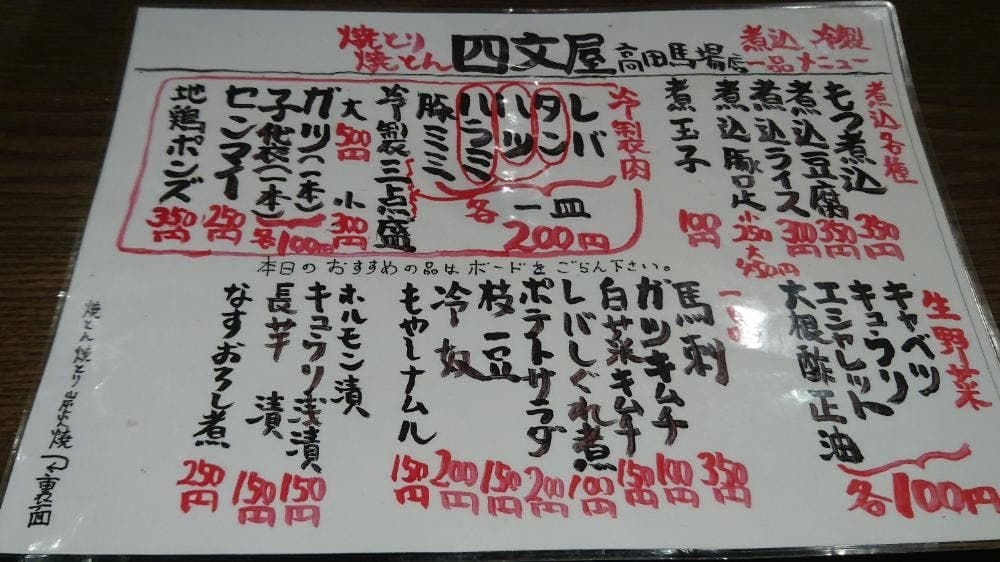 焼とり
焼とん
四文屋
高田馬場店
煮込 冷製
一品メニュー
煮込各種
もつ煮込 350円
煮込豆腐 350円
煮込ライス 300円
煮込豚足 小250 大450円
煮玉子 100円
冷製肉
レバ
タン
ハツ
ハラミ
豚ミミ
各一皿
200円
冷製三点盛
大500円 小300円
ガツ(一本)
子袋(一本)
各100円
センマイ 250円
地鶏ポンズ 350円
本日のおすすめの品はボードをごらん下さい。
生野菜
キャベツ
キュウリ
エシャレット
大根酢正油
各100円
一品
馬刺 350円
ガツキムチ 100円
白菜キムチ 150円
レバしぐれ煮 100円
ポテトサラダ 200円
枝豆 150円
冷奴 200円
もやしナムル 150円
ホルモン漬
キュウリ浅漬 150円
長芋漬 150円
なすおろし煮 250円
焼とん焼とり炭火焼
裏面